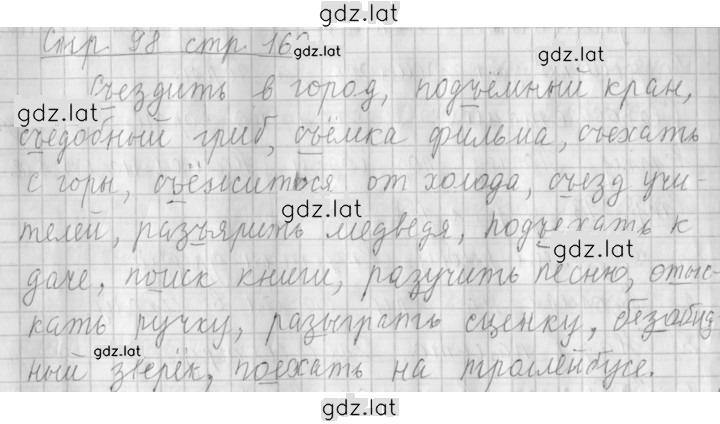 gdz.lat
Стр 98 стр 16
gdz.lat
gdz.lat
Съездить в город, подъёмный кран,
gdz.lat
съедобный гриб, съёмка фильма, съехать
с горы, съёжиться от холода, съезд учи-
gdz.lat
телей, разъярить медведя, подъехать к
gdz.lat
даче, поиск книги, разучить песню, отыс-
кать ручку, разыграть сценку, безобид
gdz.lat
ный зверёк, поехать на троллейбусе.
gdz.lat